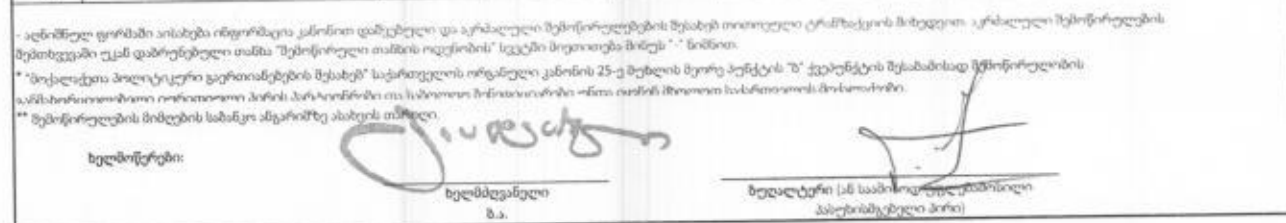 - აღნიშნულ ფორმაში აისახება ინფორმაცია კანონით დაშვებული და აკრძალული შემოწირულებების შესახებ თითოეული ტრანზაქციის მიხედვით. აკრძალული შემოწირულების
შემთხვევაში უკან დაბრუნებული თანხა "შემოწირული თანხის ოდენობის" სვეტში მიეთითება მინუს "-" ნიშნით.
* "მოქალაქეთა პოლიტიკური გაერთიანებების შესახებ" საქართველოს ორგანული კანონის 25-ე მუხლის მეორე პუნქტის "ბ" ქვეპუნქტის შესაბამისად შემოწირულობის
განმახორციელებელი იურიდიული პირის პარტნიორები და საბოლოო ბენეფიციარები უნდა იყვნენ მხოლოდ საქართველოს მოქალაქეები.
** შემოწირულების მიმღების საბანკო ანგარიშზე ასახვის თარიღი.
ხელმოწერები:
ხელმძღვანელი
ბუღალტერი (ან საამისოდ უფლებამოსილი
ბ.ა.
პასუხისმგებელი პირი)